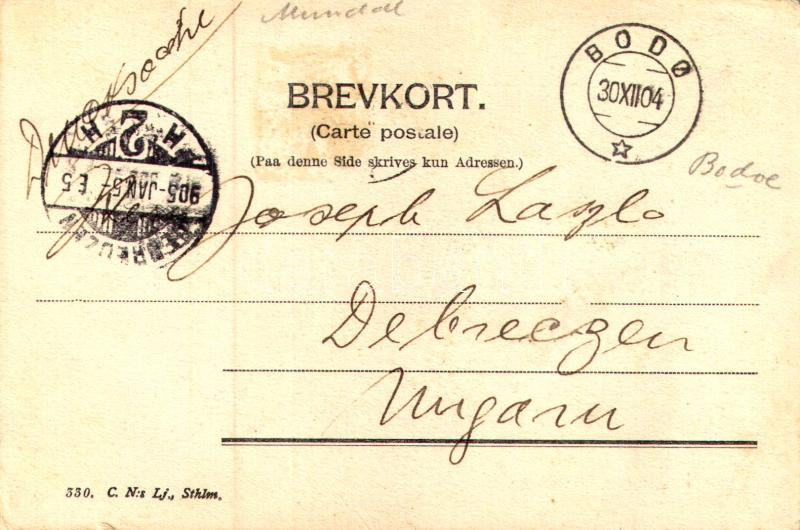 Mundal
Drucksache
BODØ
30XII04
BREVKORT.
(Carte postale)
(Paa denne Side skrives kun Adressen.)
Bodoe
905-JAN.5-E.5
DEBRECZEN
Joseph Laszlo
Debreczen
Ungarn
330. C. N:s Lj., Sthlm.